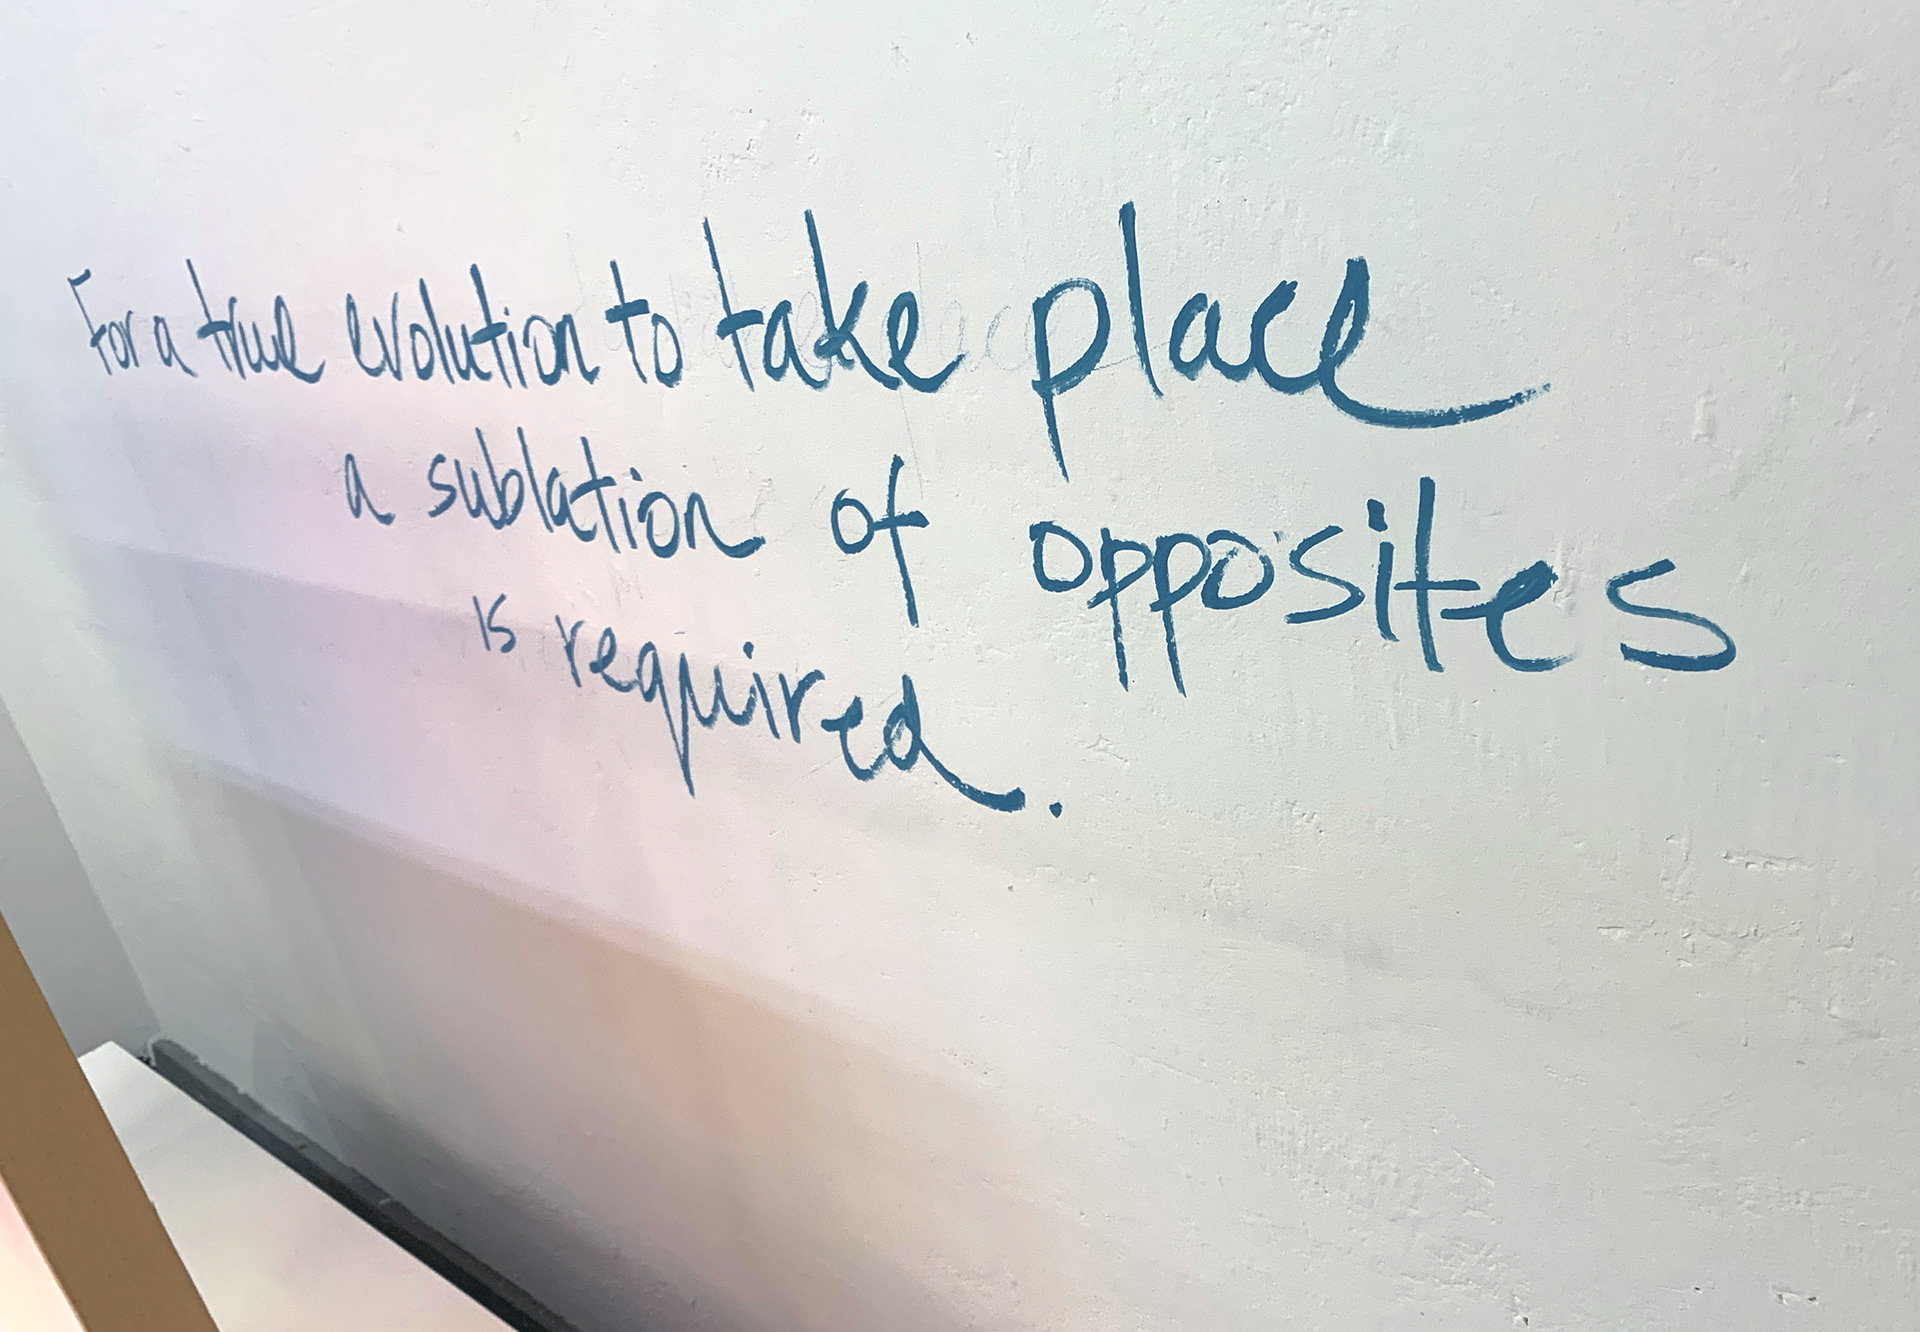 For a true evolution to take place
a sublation of opposites
is required.